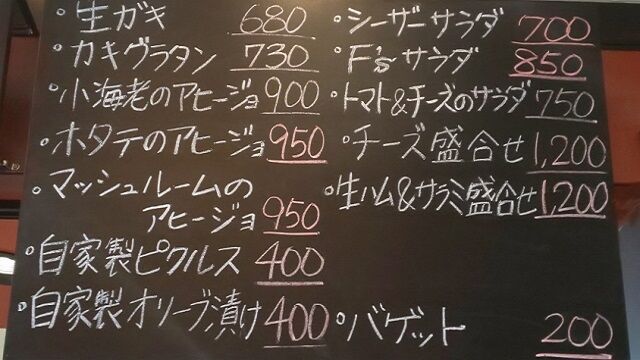 ・生ガキ 680
・カキグラタン 730
・小海老のアヒージョ 900
・ホタテのアヒージョ 950
・マッシュルームの
アヒージョ 950
・自家製ピクルス 400
・自家製オリーブ漬け 400
・シーザーサラダ 700
・F'sサラダ 850
・トマト&チーズのサラダ 750
・チーズ盛合せ 1,200
・生ハム&サラミ盛合せ 1,200
・バゲット 200